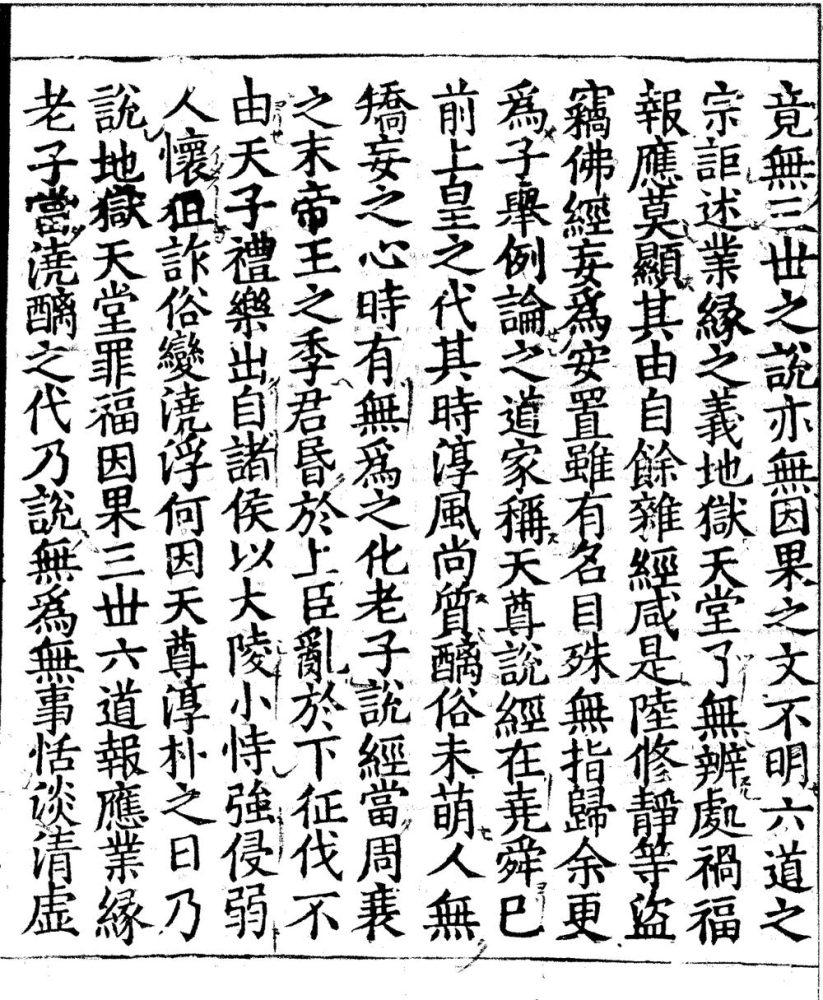 竟無三丗之說亦無因果之文不明六道之
宗詎述業緣之義地獄天堂了無辨處禍福
報應莫顯其由自餘雜經咸是陸修靜等盜
竊佛經妄爲安置雖有名目殊無指歸余更
爲子舉例論之道家稱天尊說經在堯舜巳
前上皇之代其時淳風尚質醨俗未萌人無
矯妄之心時有無爲之化老子說經當周衰
之末帝王之季君昬於上臣亂於下征伐不
由天子禮樂出自諸侯以大陵小恃強侵弱
人懷狙詐俗變澆浮何因天尊淳朴之日乃
說地獄天堂罪福因果三丗六道報應業緣
老子當澆醨之代乃說無爲無事恬談清虛